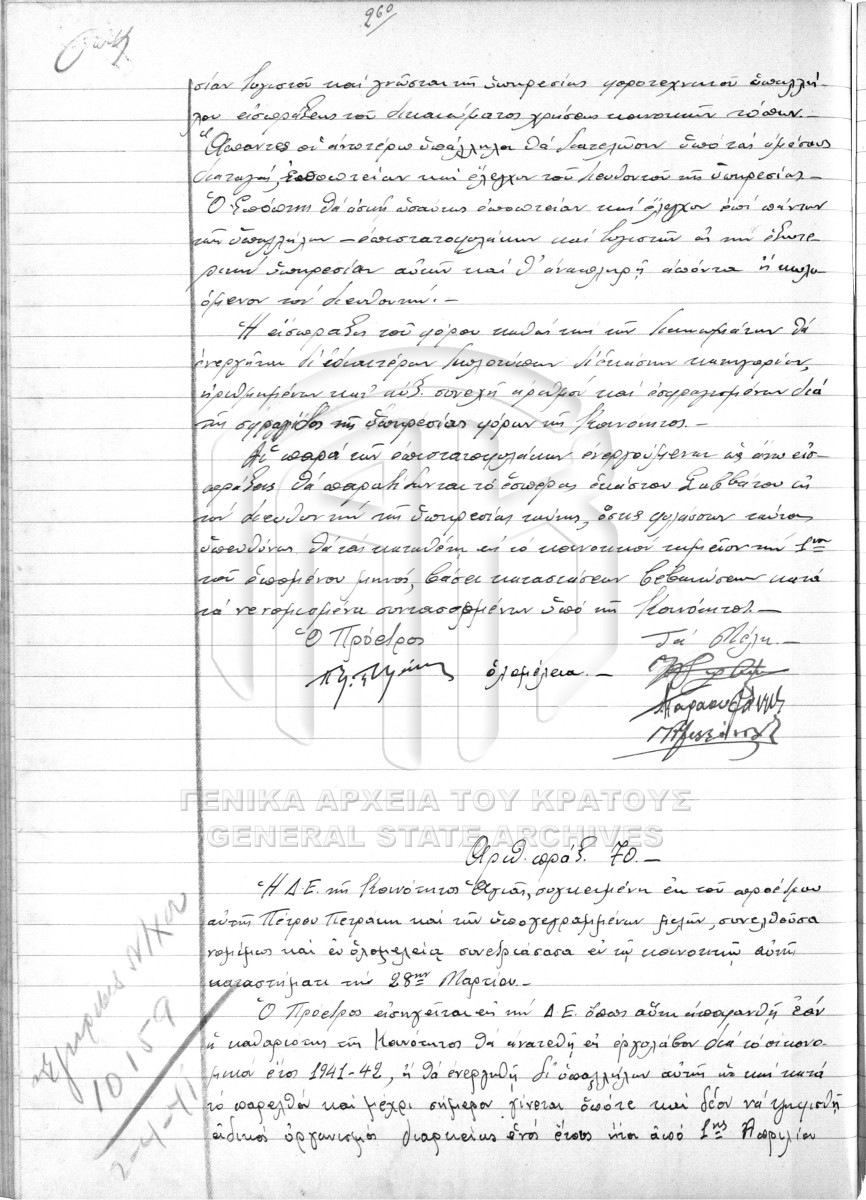 260
σίαν λογιστού και γνώστου της υπηρεσίας φοροτεχνικού υπαλλή-
λου εισπράξεως του δικαιώματος χρήσεως κοινοτικών τόπων.-
Άπαντες οι ανωτέρω υπάλληλοι θα διατελώσιν υπό τας αμέσους
διαταγάς, εποπτείαν και έλεγχον του διευθυντού της υπηρεσίας.-
Ο Επόπτης θα ασκή ωσαύτως εποπτείαν και έλεγχον επί πάντων
των υπαλλήλων - επιστατοφυλάκων και λογιστών εις την εξωτε-
ρικήν υπηρεσίαν αυτών και θ' αναπληρή απόντα ή κωλυ-
όμενον τον διευθυντήν.-
Η είσπραξις του φόρου καθώς και των δικαιωμάτων θα
ενεργήται δι' ιδιαιτέρων διπλοτύπων δι' εκάστην κατηγορίαν,
ηριθμημένων κατ' αύξ. συνεχή αριθμόν και εσφραγισμένων διά
της σφραγίδος της υπηρεσίας φόρων της Κοινότητος.-
Αι παρά των επιστατοφυλάκων ενεργούμεναι ως άνω εισ-
πράξεις θα παραδίδωνται το εσπέρας εκάστου Σαββάτου εις
τον διευθυντήν της υπηρεσίας ταύτης, όστις φυλάσσων ταύτας
υπευθύνως θα τας καταθέτη εις το κοινοτικόν ταμείον την 1ην
του επομένου μηνός, βάσει καταστάσεων βεβαιώσεων κατά
τα νενομισμένα συντασσομένων υπό της Κοινότητος.-
Ο Πρόεδρος Τα Μέλη.-
ολομέλεια.-
ΓΕΝΙΚΑ ΑΡΧΕΙΑ ΤΟΥ ΚΡΑΤΟΥΣ
GENERAL STATE ARCHIVES
Αριθ. πράξ. 70.-
Η Δ.Ε. της Κοινότητος Αγιάς, συγκειμένη εκ του προέδρου
αυτής Πέτρου Πετράκη και των υπογεγραμμένων μελών, συνελθούσα
νομίμως και εν ολομελεία συνεδριάσασα εν τω κοινοτικώ αυτής
καταστήματι την 28ην Μαρτίου.-
Ο Πρόεδρος εισηγείται εις την Δ.Ε. όπως αύτη αποφανθή εάν
η καθαριότης της Κοινότητος θα ανατεθή εις εργολάβον διά το οικονο-
μικόν έτος 1941-42, ή θα ενεργηθή δι' υπαλλήλων αυτής ως και κατά
το παρελθόν και μέχρι σήμερον γίνεται οπότε και δέον να ψηφισθή
ειδικός οργανισμός διαρκείας ενός έτους ήτοι από 1ης Απριλίου
10159
2-4-41